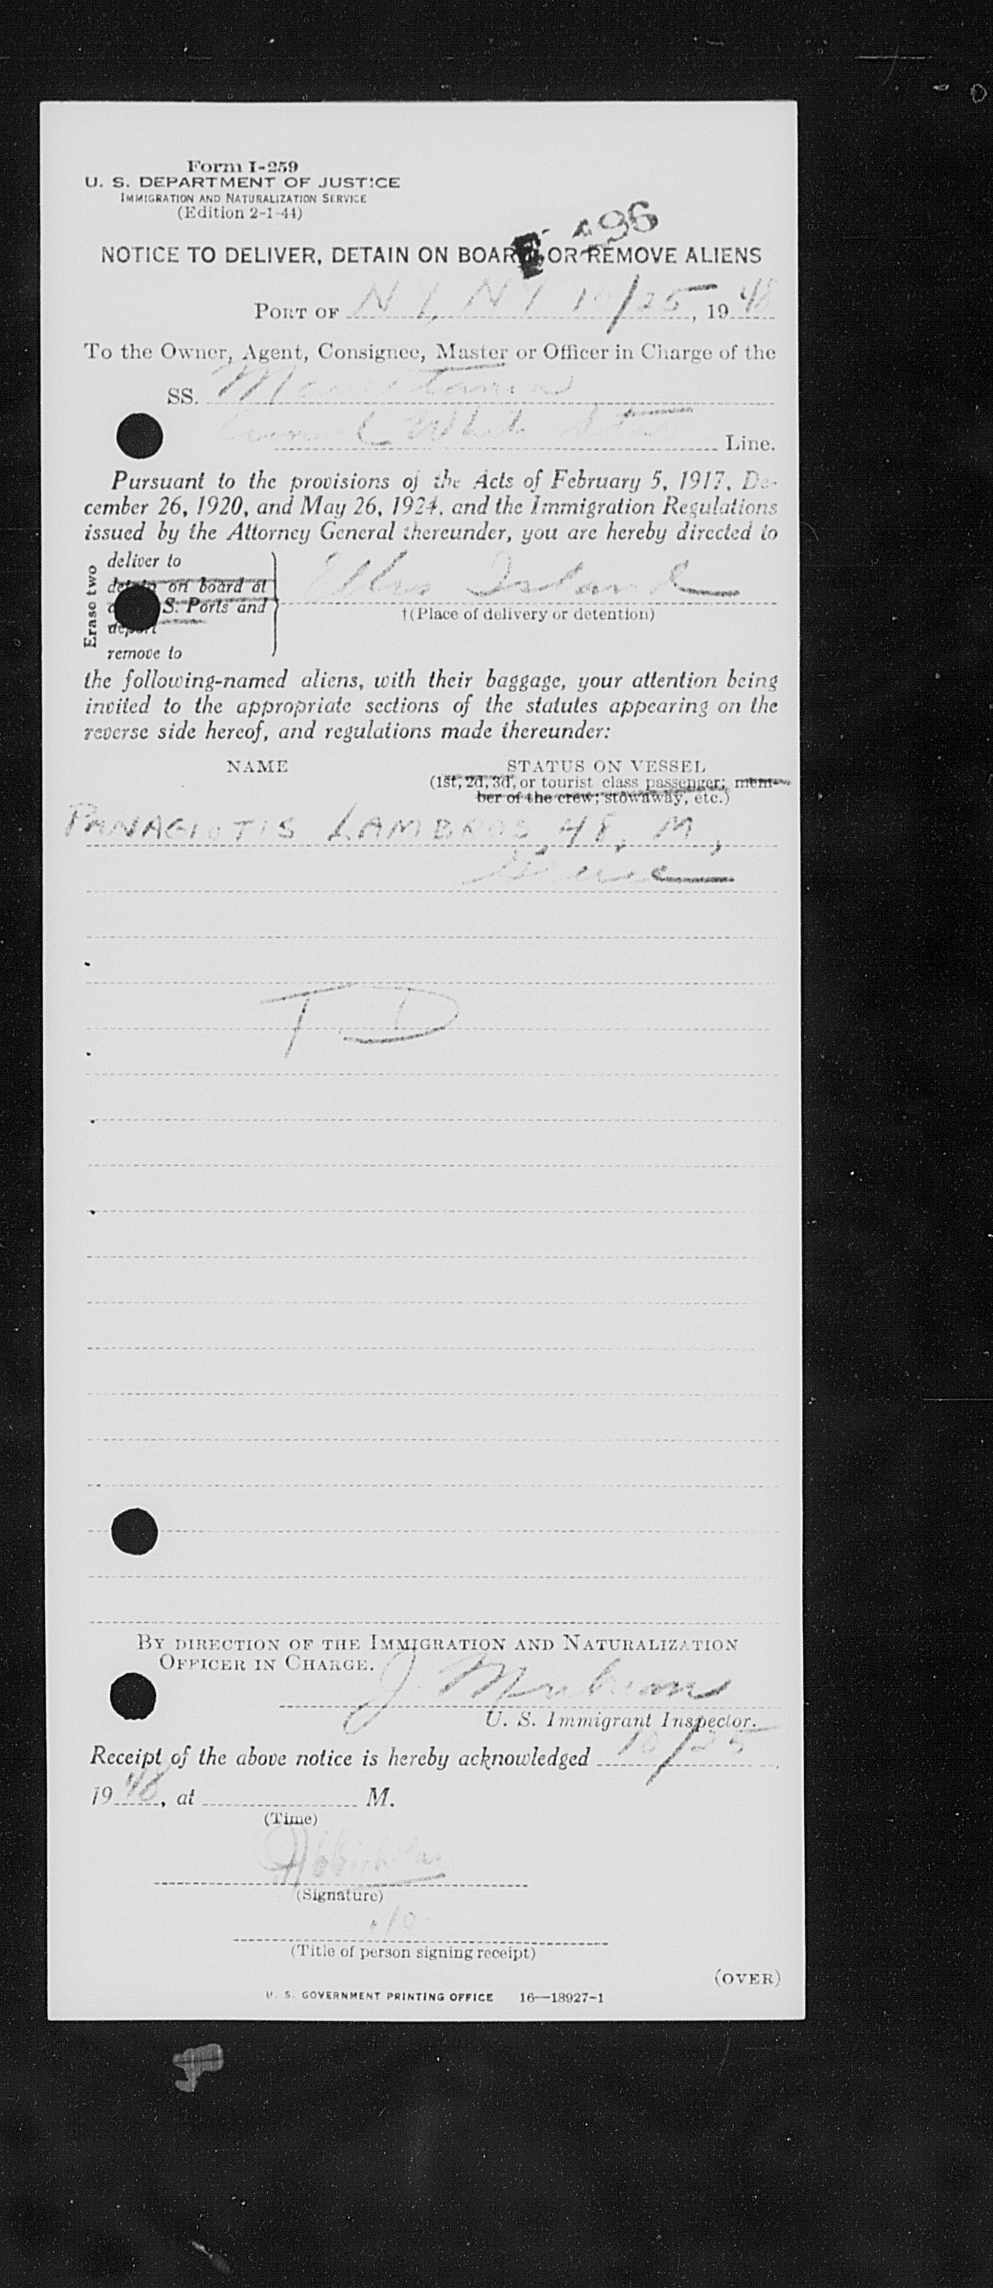 Form I-259
U. S. DEPARTMENT OF JUSTICE
IMMIGRATION AND NATURALIZATION SERVICE
(Edition 2-1-44)
496
NOTICE TO DELIVER, DETAIN ON BOARD, OR REMOVE ALIENS
PORT OF N Y, N Y 10/25, 1948
To the Owner, Agent, Consignee, Master or Officer in Charge of the
SS. Mauretania
Cunard White Star Line.
Pursuant to the provisions of the Acts of February 5, 1917, De-
cember 26, 1920, and May 26, 1924, and the Immigration Regulations
issued by the Attorney General thereunder, you are hereby directed to
Erase two
deliver to
detain on board at
S. Ports and
deport
remove to
Ellis Island
†(Place of delivery or detention)
the following-named aliens, with their baggage, your attention being
invited to the appropriate sections of the statutes appearing on the
reverse side hereof, and regulations made thereunder:
NAME STATUS ON VESSEL
(1st, 2d, 3d, or tourist class passenger; mem-
ber of the crew; stowaway, etc.)
PANAGIOTIS LAMBROS, 48, M,
Greece
T D
BY DIRECTION OF THE IMMIGRATION AND NATURALIZATION
OFFICER IN CHARGE.
J.
U. S. Immigrant Inspector.
Receipt of the above notice is hereby acknowledged 10/25
1948, at M.
(Time)
(Signature)
(Title of person signing receipt)
(OVER)
U. S. GOVERNMENT PRINTING OFFICE 16—18927-1